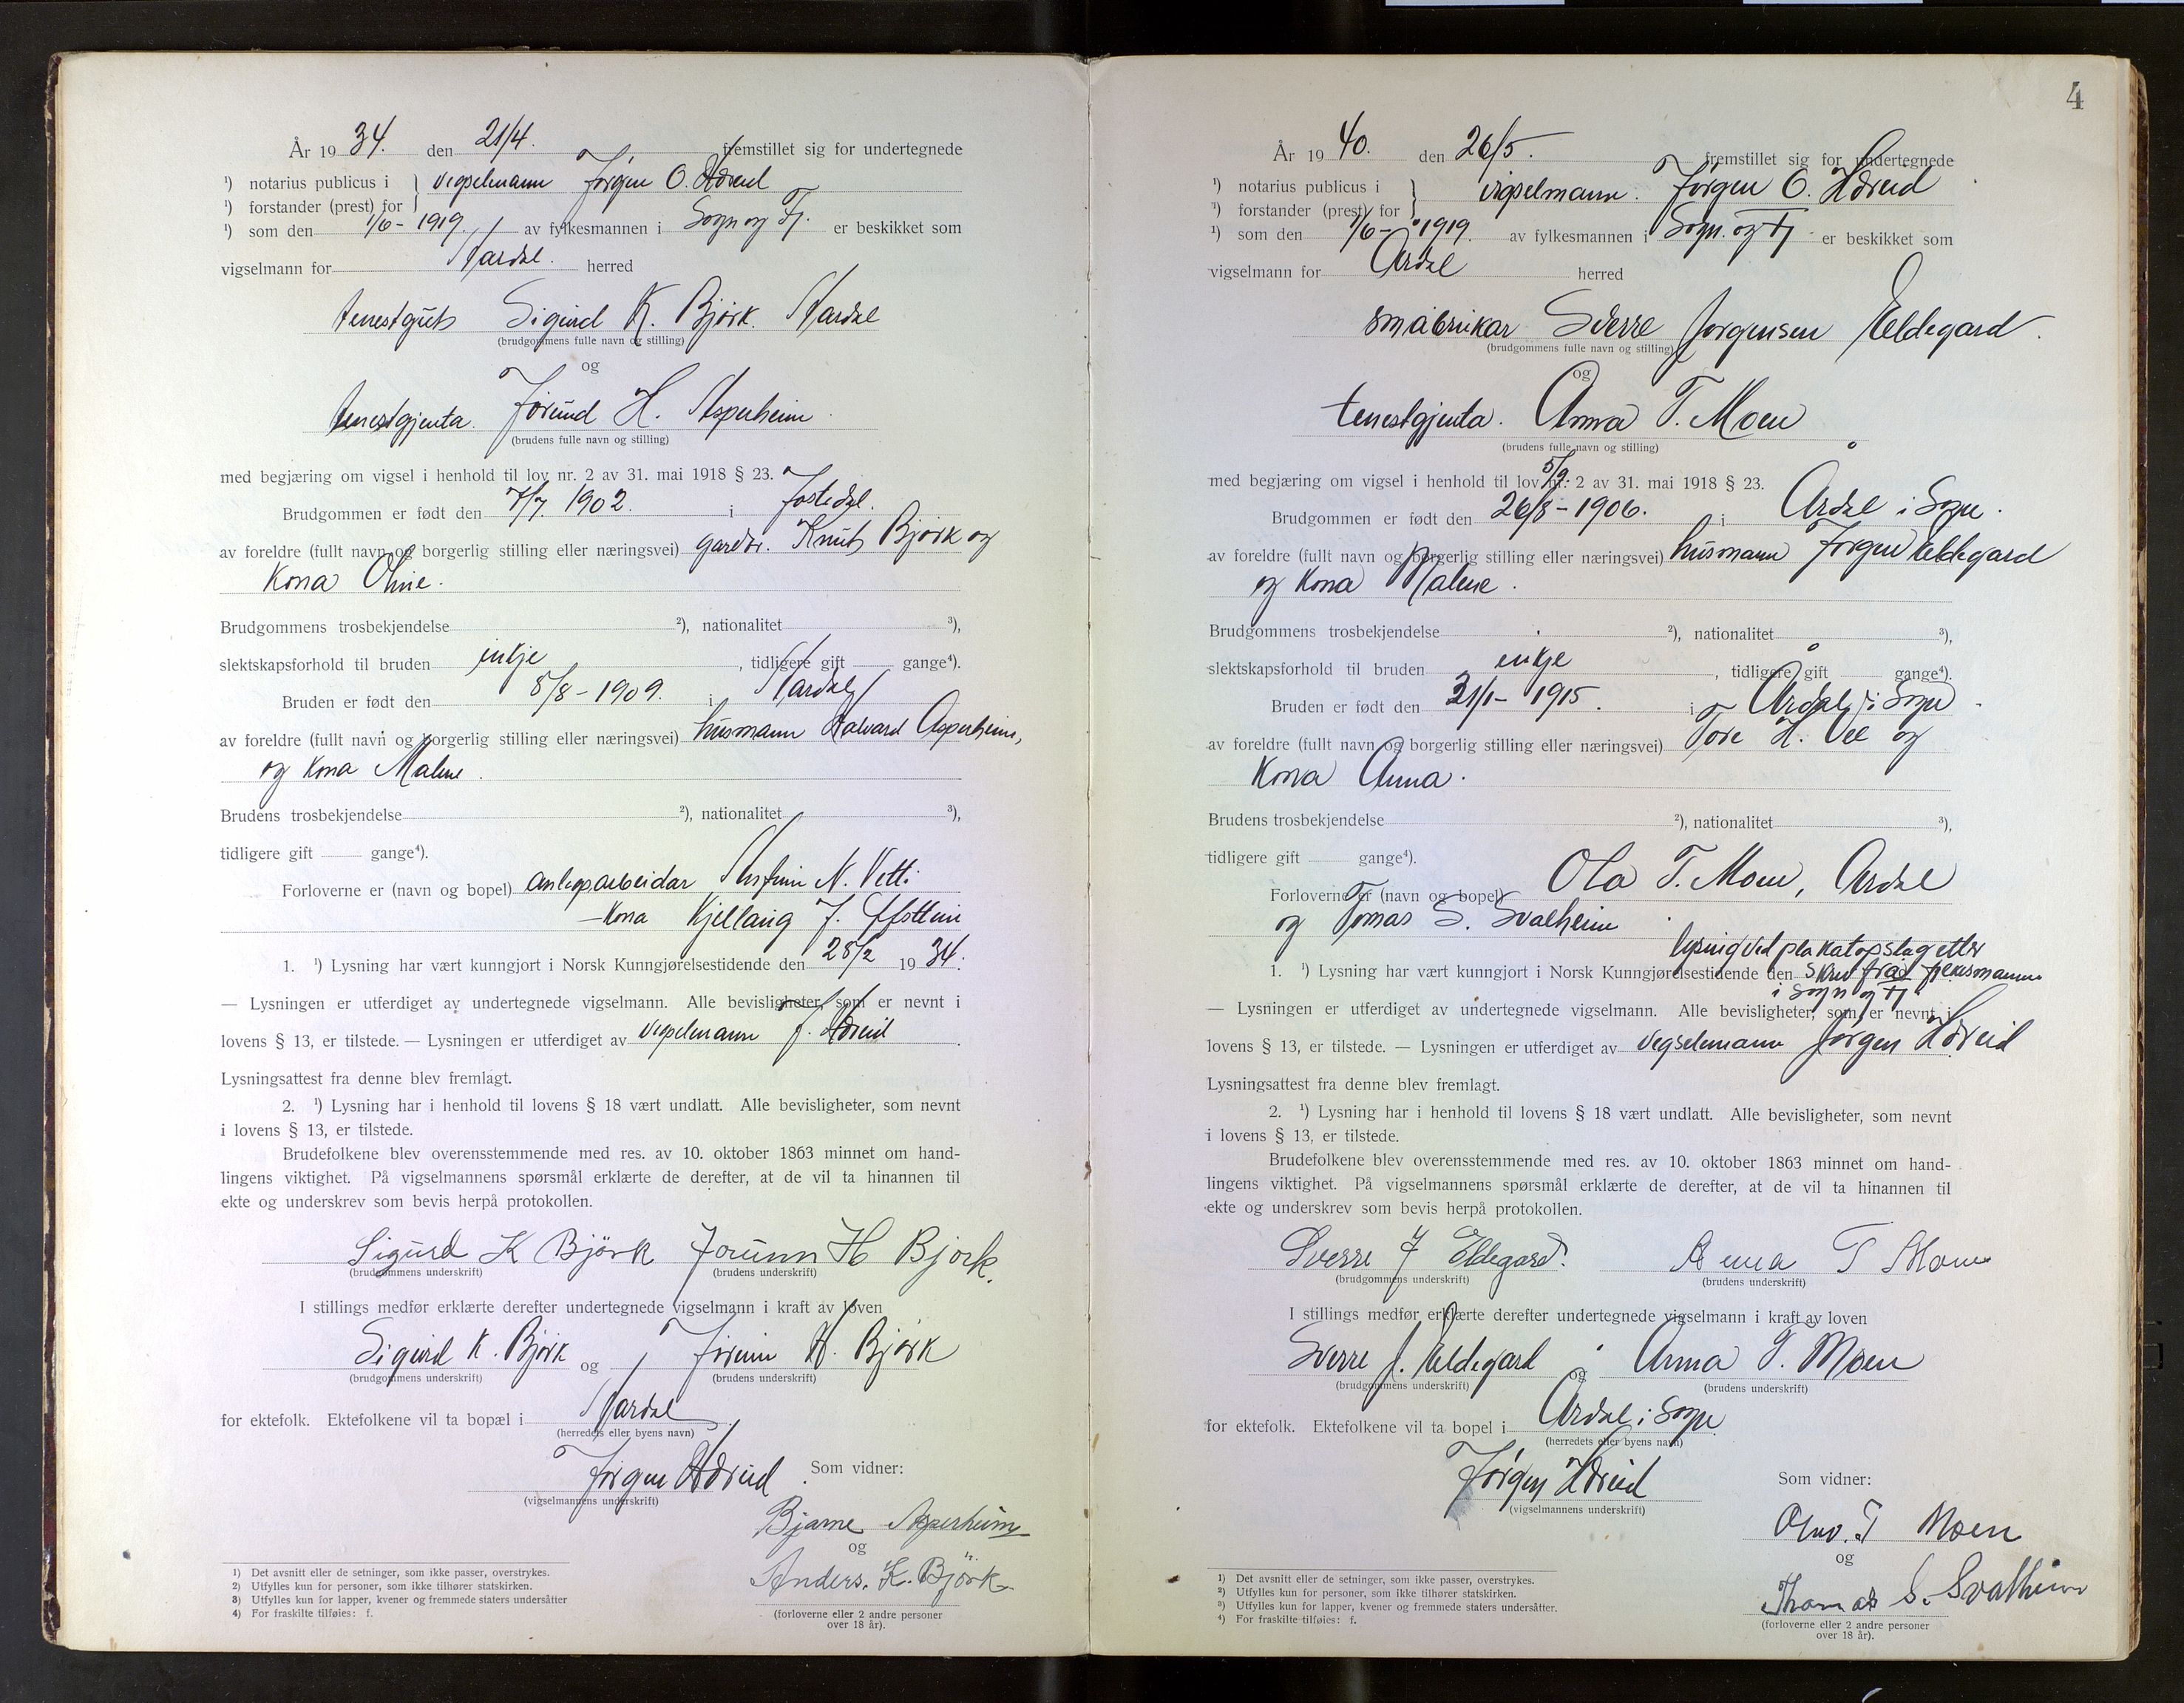 År 19 34. den 21/4. fremstillet sig for undertegnede
¹) notarius publicus i } vigselmann Jørgen O. Hæreid
¹) forstander (prest) for
¹) som den 1/6 - 1919. av fylkesmannen i Sogn og Fj. er beskikket som
vigselmann for Aardal. herred
tenestgut Sigurd K. Bjørk. Aardal
(brudgommens fulle navn og stilling)
og
tenestgjenta. Jorund H. Asperheim
(brudens fulle navn og stilling)
med begjæring om vigsel i henhold til lov nr. 2 av 31. mai 1918 § 23.
Brudgommen er født den 7/7 1902. i Jostedal.
av foreldre (fullt navn og borgerlig stilling eller næringsvei) gardbr. Knut Bjørk og
Kona Oline.
Brudgommens trosbekjendelse ²), nationalitet ³),
slektskapsforhold til bruden inkje , tidligere gift gange⁴).
Bruden er født den 5/8 - 1909. i Aardal
av foreldre (fullt navn og borgerlig stilling eller næringsvei) husmann Halvard Asperheim,
og Kona Malene.
Brudens trosbekjendelse ²), nationalitet ³),
tidligere gift gange⁴).
Forloverne er (navn og bopel) anlegsarbeidar N. Vetti
- Kona Kjellaug J.
1. ¹) Lysning har vært kunngjort i Norsk Kunngjørelsestidende den 28/2 19 34.
— Lysningen er utferdiget av undertegnede vigselmann. Alle bevisligheter, som er nevnt i
lovens § 13, er tilstede. — Lysningen er utferdiget av vigselmann J. Hæreid.
Lysningsattest fra denne blev fremlagt.
2. ¹) Lysning har i henhold til lovens § 18 vært undlatt. Alle bevisligheter, som nevnt
i lovens § 13, er tilstede.
Brudefolkene blev overensstemmende med res. av 10. oktober 1863 minnet om hand-
lingens viktighet. På vigselmannens spørsmål erklærte de derefter, at de vil ta hinannen til
ekte og underskrev som bevis herpå protokollen.
Sigurd K Björk Jorunn H Bjork.
(brudgommens underskrift) (brudens underskrift)
I stillings medfør erklærte derefter undertegnede vigselmann i kraft av loven
Sigurd K. Bjørk og Jorunn H. Bjørk
(brudgommens underskrift) (brudens underskrift)
for ektefolk. Ektefolkene vil ta bopæl i Aardal
(herredets eller byens navn)
Jørgen Hæreid Som vidner:
(vigselmannens underskrift)
Bjarne Asperheim
og
Anders. K. Björk
(forloverne eller 2 andre personer
over 18 år).
1) Det avsnitt eller de setninger, som ikke passer, overstrykes.
2) Utfylles kun for personer, som ikke tilhører statskirken.
3) Utfylles kun for lapper, kvener og fremmede staters undersåtter
4) For fraskilte tilføies: f.
4
År 19 40. den 26/5. fremstillet sig for undertegnede
¹) notarius publicus i } vigselmann. Jørgen O. Hæreid
¹) forstander (prest) for
¹) som den 1/6 - 1919. av fylkesmannen i Sogn. og Fj er beskikket som
vigselmann for Årdal herred
småbrukar Sverre Jørgensen Eldegard.
(brudgommens fulle navn og stilling)
og
tenestgjenta. Anna T. Moen
(brudens fulle navn og stilling)
med begjæring om vigsel i henhold til lov nr. 2 av 31. mai 1918 § 23.
5/9.
Brudgommen er født den 26/8 - 1906. i Årdal i Sogn.
av foreldre (fullt navn og borgerlig stilling eller næringsvei) husmann Jørgen Eldegard
og Kona Malene.
Brudgommens trosbekjendelse ²), nationalitet ³),
slektskapsforhold til bruden inkje , tidligere gift gange⁴).
Bruden er født den 21/1 - 1915. i Årdal i Sogn
av foreldre (fullt navn og borgerlig stilling eller næringsvei) Tore H. Vee og
Kona Anna.
Brudens trosbekjendelse ²), nationalitet ³),
tidligere gift gange⁴).
Forloverne er (navn og bopel) Ola T. Moen, Årdal
og Tomas S. Svalheim
lysnig ved plakatopslag etter
1. ¹) Lysning har vært kunngjort i Norsk Kunngjørelsestidende den skriv frå fylkesmannen
i Sogn og Fj
— Lysningen er utferdiget av undertegnede vigselmann. Alle bevisligheter, som er nevnt i
lovens § 13, er tilstede. — Lysningen er utferdiget av vegselmann Jørgen Hæreid
Lysningsattest fra denne blev fremlagt.
2. ¹) Lysning har i henhold til lovens § 18 vært undlatt. Alle bevisligheter, som nevnt
i lovens § 13, er tilstede.
Brudefolkene blev overensstemmende med res. av 10. oktober 1863 minnet om hand-
lingens viktighet. På vigselmannens spørsmål erklærte de derefter, at de vil ta hinannen til
ekte og underskrev som bevis herpå protokollen.
Sverre J Eldegard. Anna T Moen
(brudgommens underskrift) (brudens underskrift)
I stillings medfør erklærte derefter undertegnede vigselmann i kraft av loven
Sverre J. Eldegard og Anna T. Moen
(brudgommens underskrift) (brudens underskrift)
for ektefolk. Ektefolkene vil ta bopel i Årdal i Sogn
(herredets eller byens navn)
Jørgen Hæreid Som vidner:
(vigselmannens underskrift)
Olav. T Moen
og
Thomas S. Svalheim
(forloverne eller 2 andre personer
over 18 år).
1) Det avsnitt eller de setninger, som ikke passer, overstrykes.
2) Utfylles kun for personer, som ikke tilhører statskirken.
3) Utfylles kun for lapper, kvener og fremmede staters undersåtter.
4) For fraskilte tilføies: f.